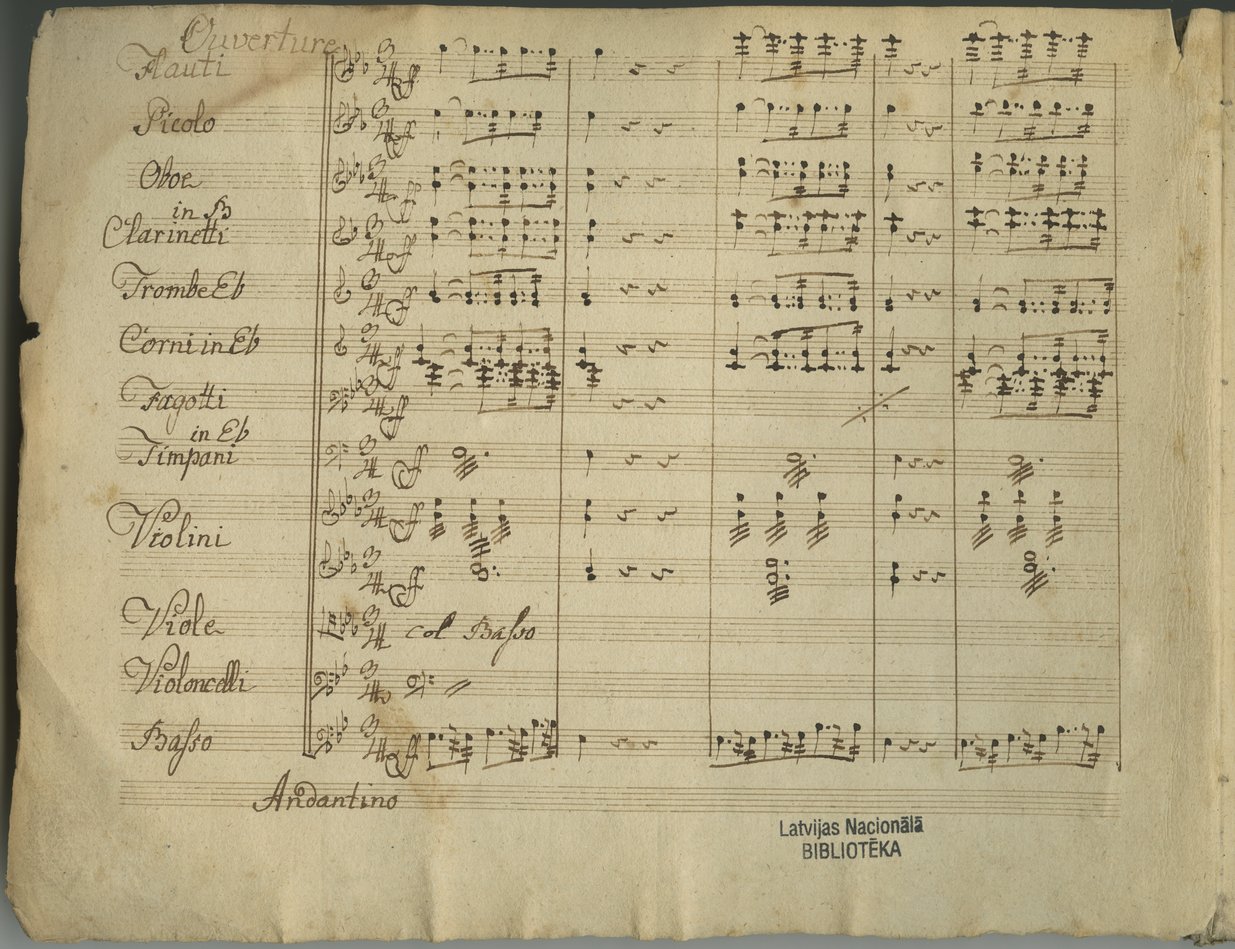 Ouverture
Flauti
Picolo
Oboe
in B
Clarinetti
Trombe Eb
Corni in Eb
Fagotti
in Eb
Timpani
Violini
Viole col Baſso
Violoncelli
Baſso
Andantino
Latvijas Nacionālā
BIBLIOTĒKA